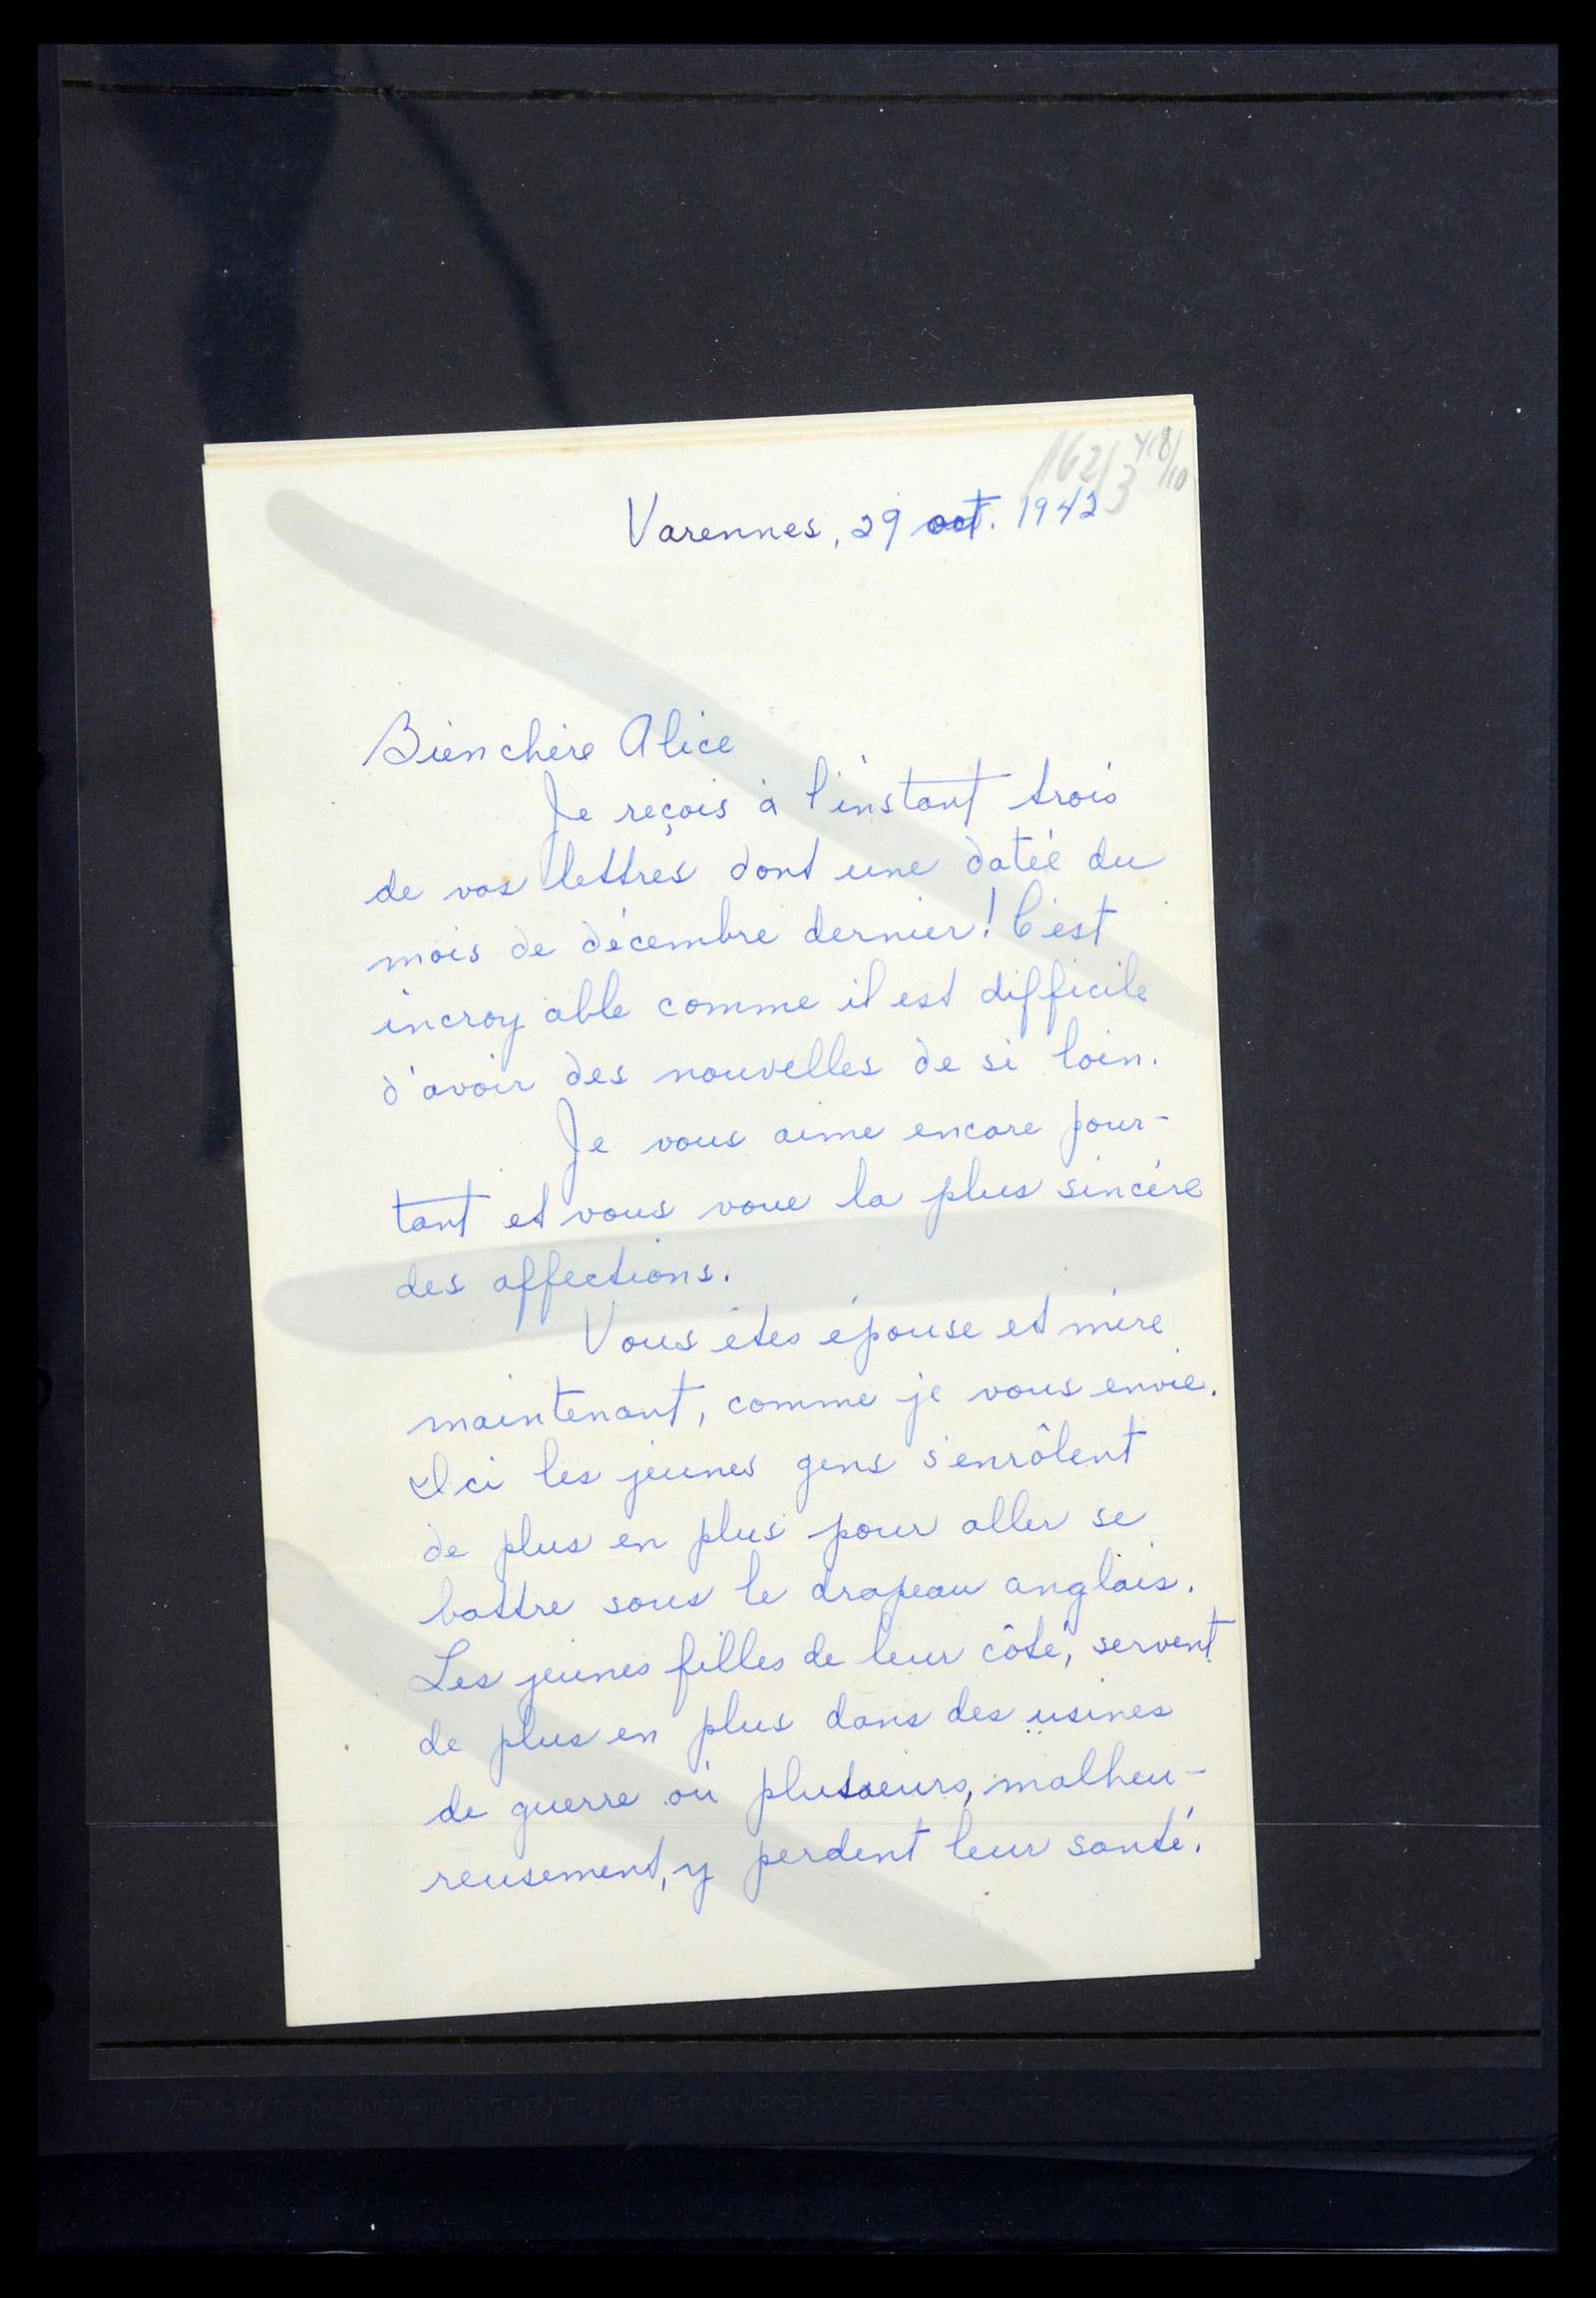 162/3 418/10
Varennes, 29 oct. 1942
Bien chère Alice
Je reçois à l'instant trois
de vos lettres dont une datée du
mois de décembre dernier! C'est
incroyable comme il est difficile
d'avoir des nouvelles de si loin.
Je vous aime encore pour-
tant et vous voue la plus sincère
des affections.
Vous êtes épouse et mère
maintenant, comme je vous envie.
Ici les jeunes gens s'enrôlent
de plus en plus pour aller se
battre sous le drapeau anglais.
Les jeunes filles de leur côté, servent
de plus en plus dans des usines
de guerre où plusieurs, malheu-
reusement, y perdent leur santé.